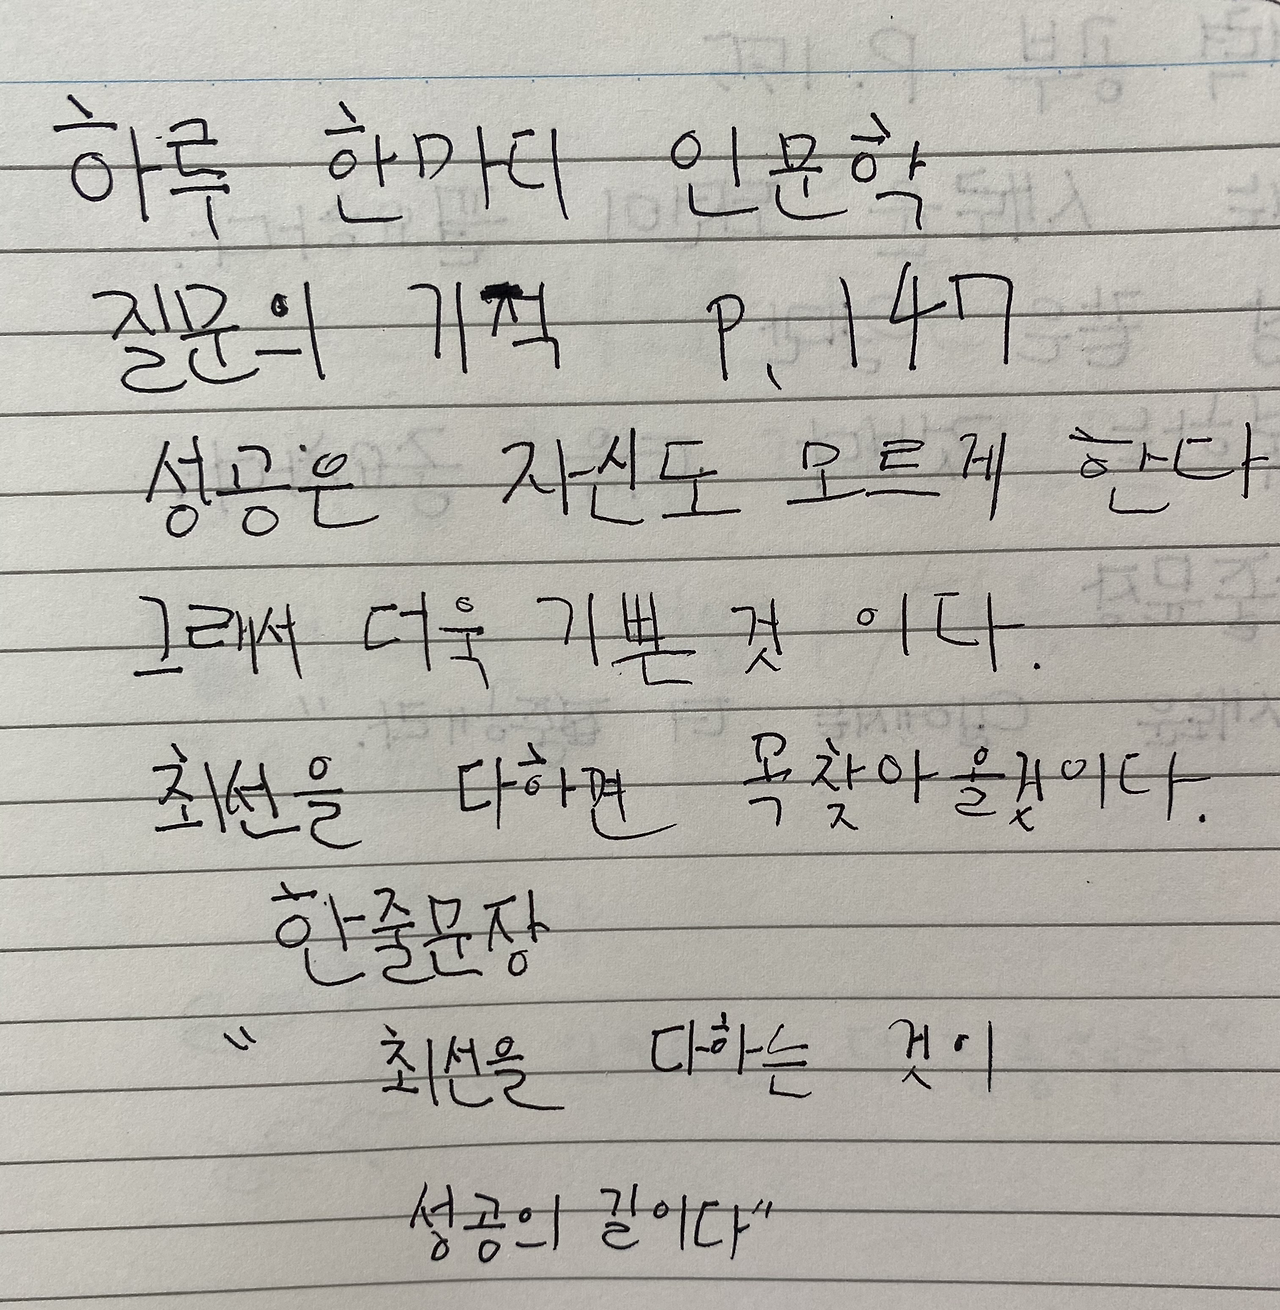 하루 한마디 인문학
질문의 기적 P.147
성공은 자신도 모르게 한다
그래서 더욱 기쁜 것 이다.
최선을 다하면 꼭 찾아올것이다.
한줄문장
" 최선을 다하는 것이
성공의 길이다"